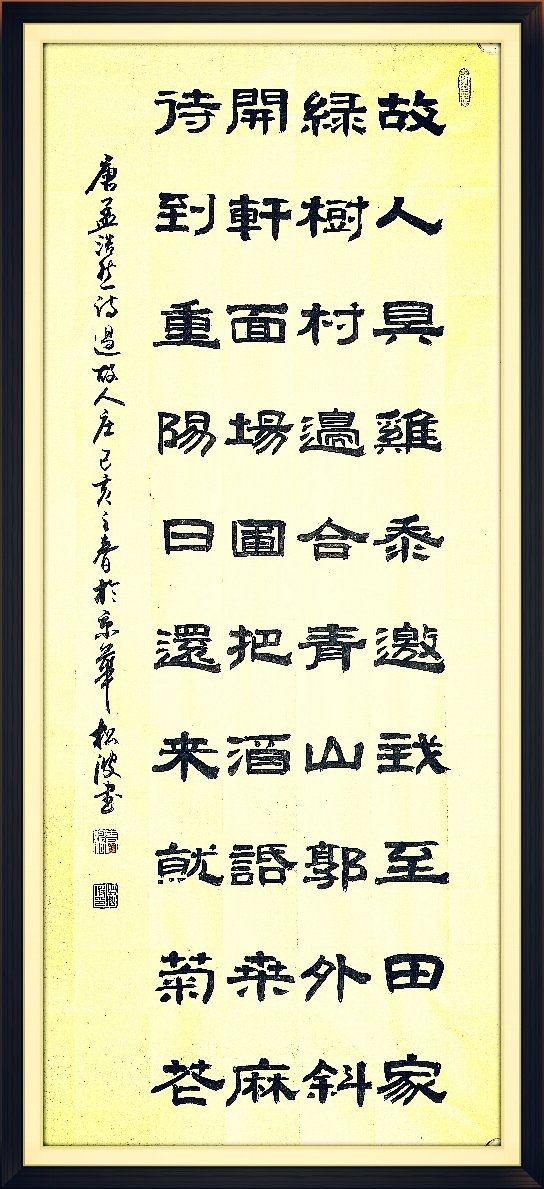 故人具雞黍邀我至田家
緑樹村邉合青山郭外斜
開軒面場圃把酒話桒麻
待到重陽日還来就菊花
唐孟浩然诗過故人庄己亥之春於京華松波书